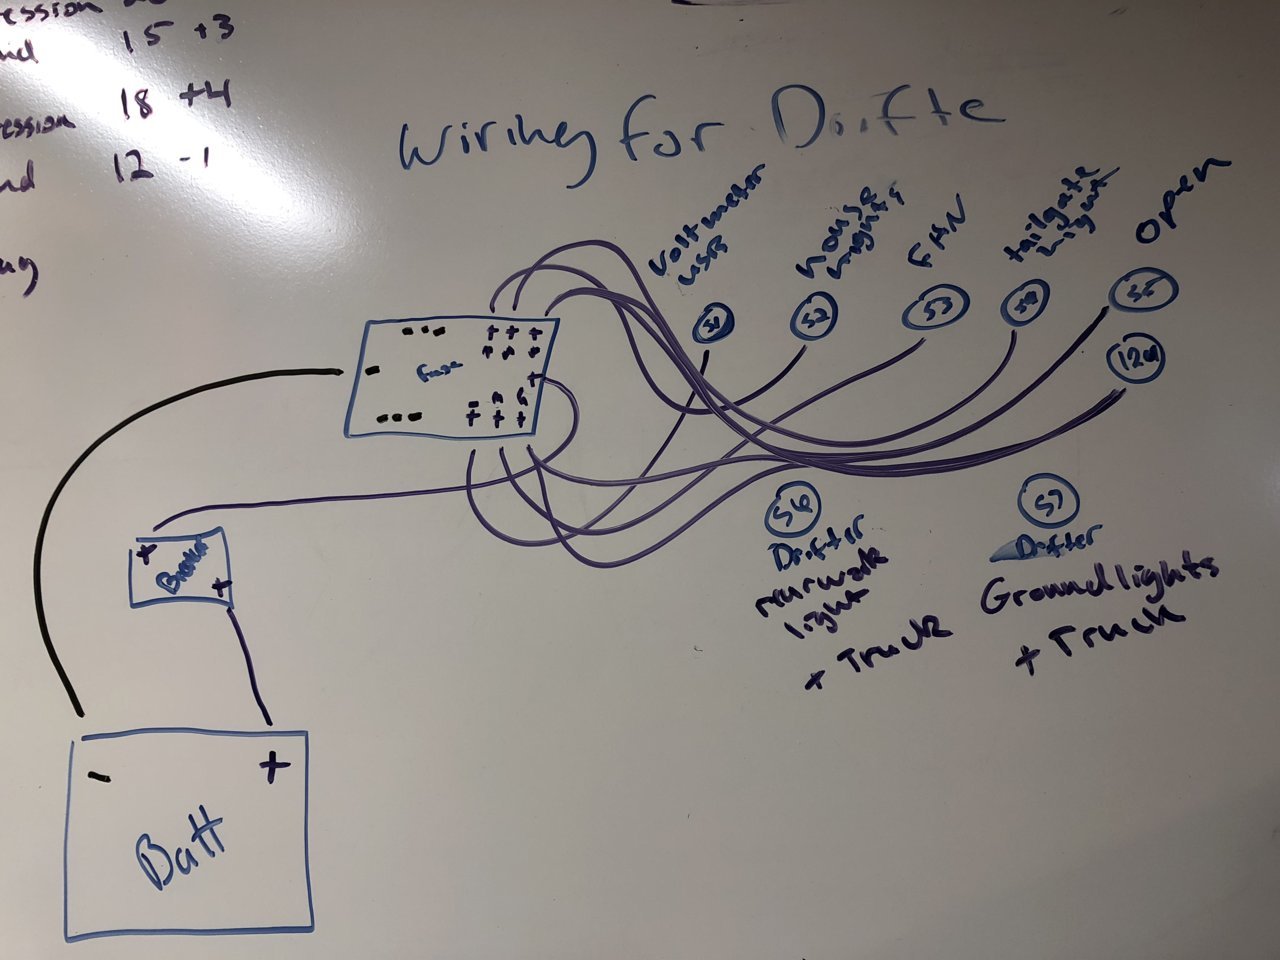 ession
15 +3
18 +4
ession
12 -1
Wiring for Drifte
Voltmeter
USB
house
lights
FAN
tailgate
Light
Open
S1
S2
S3
S4
S5
12v
- - -
+ + +
- Fuse
+
- - -
+ + +
+
Breaker
+
- +
Batt
S6
Drifter
light
+ Truck
S7
Drifter
Ground lights
+ Truck